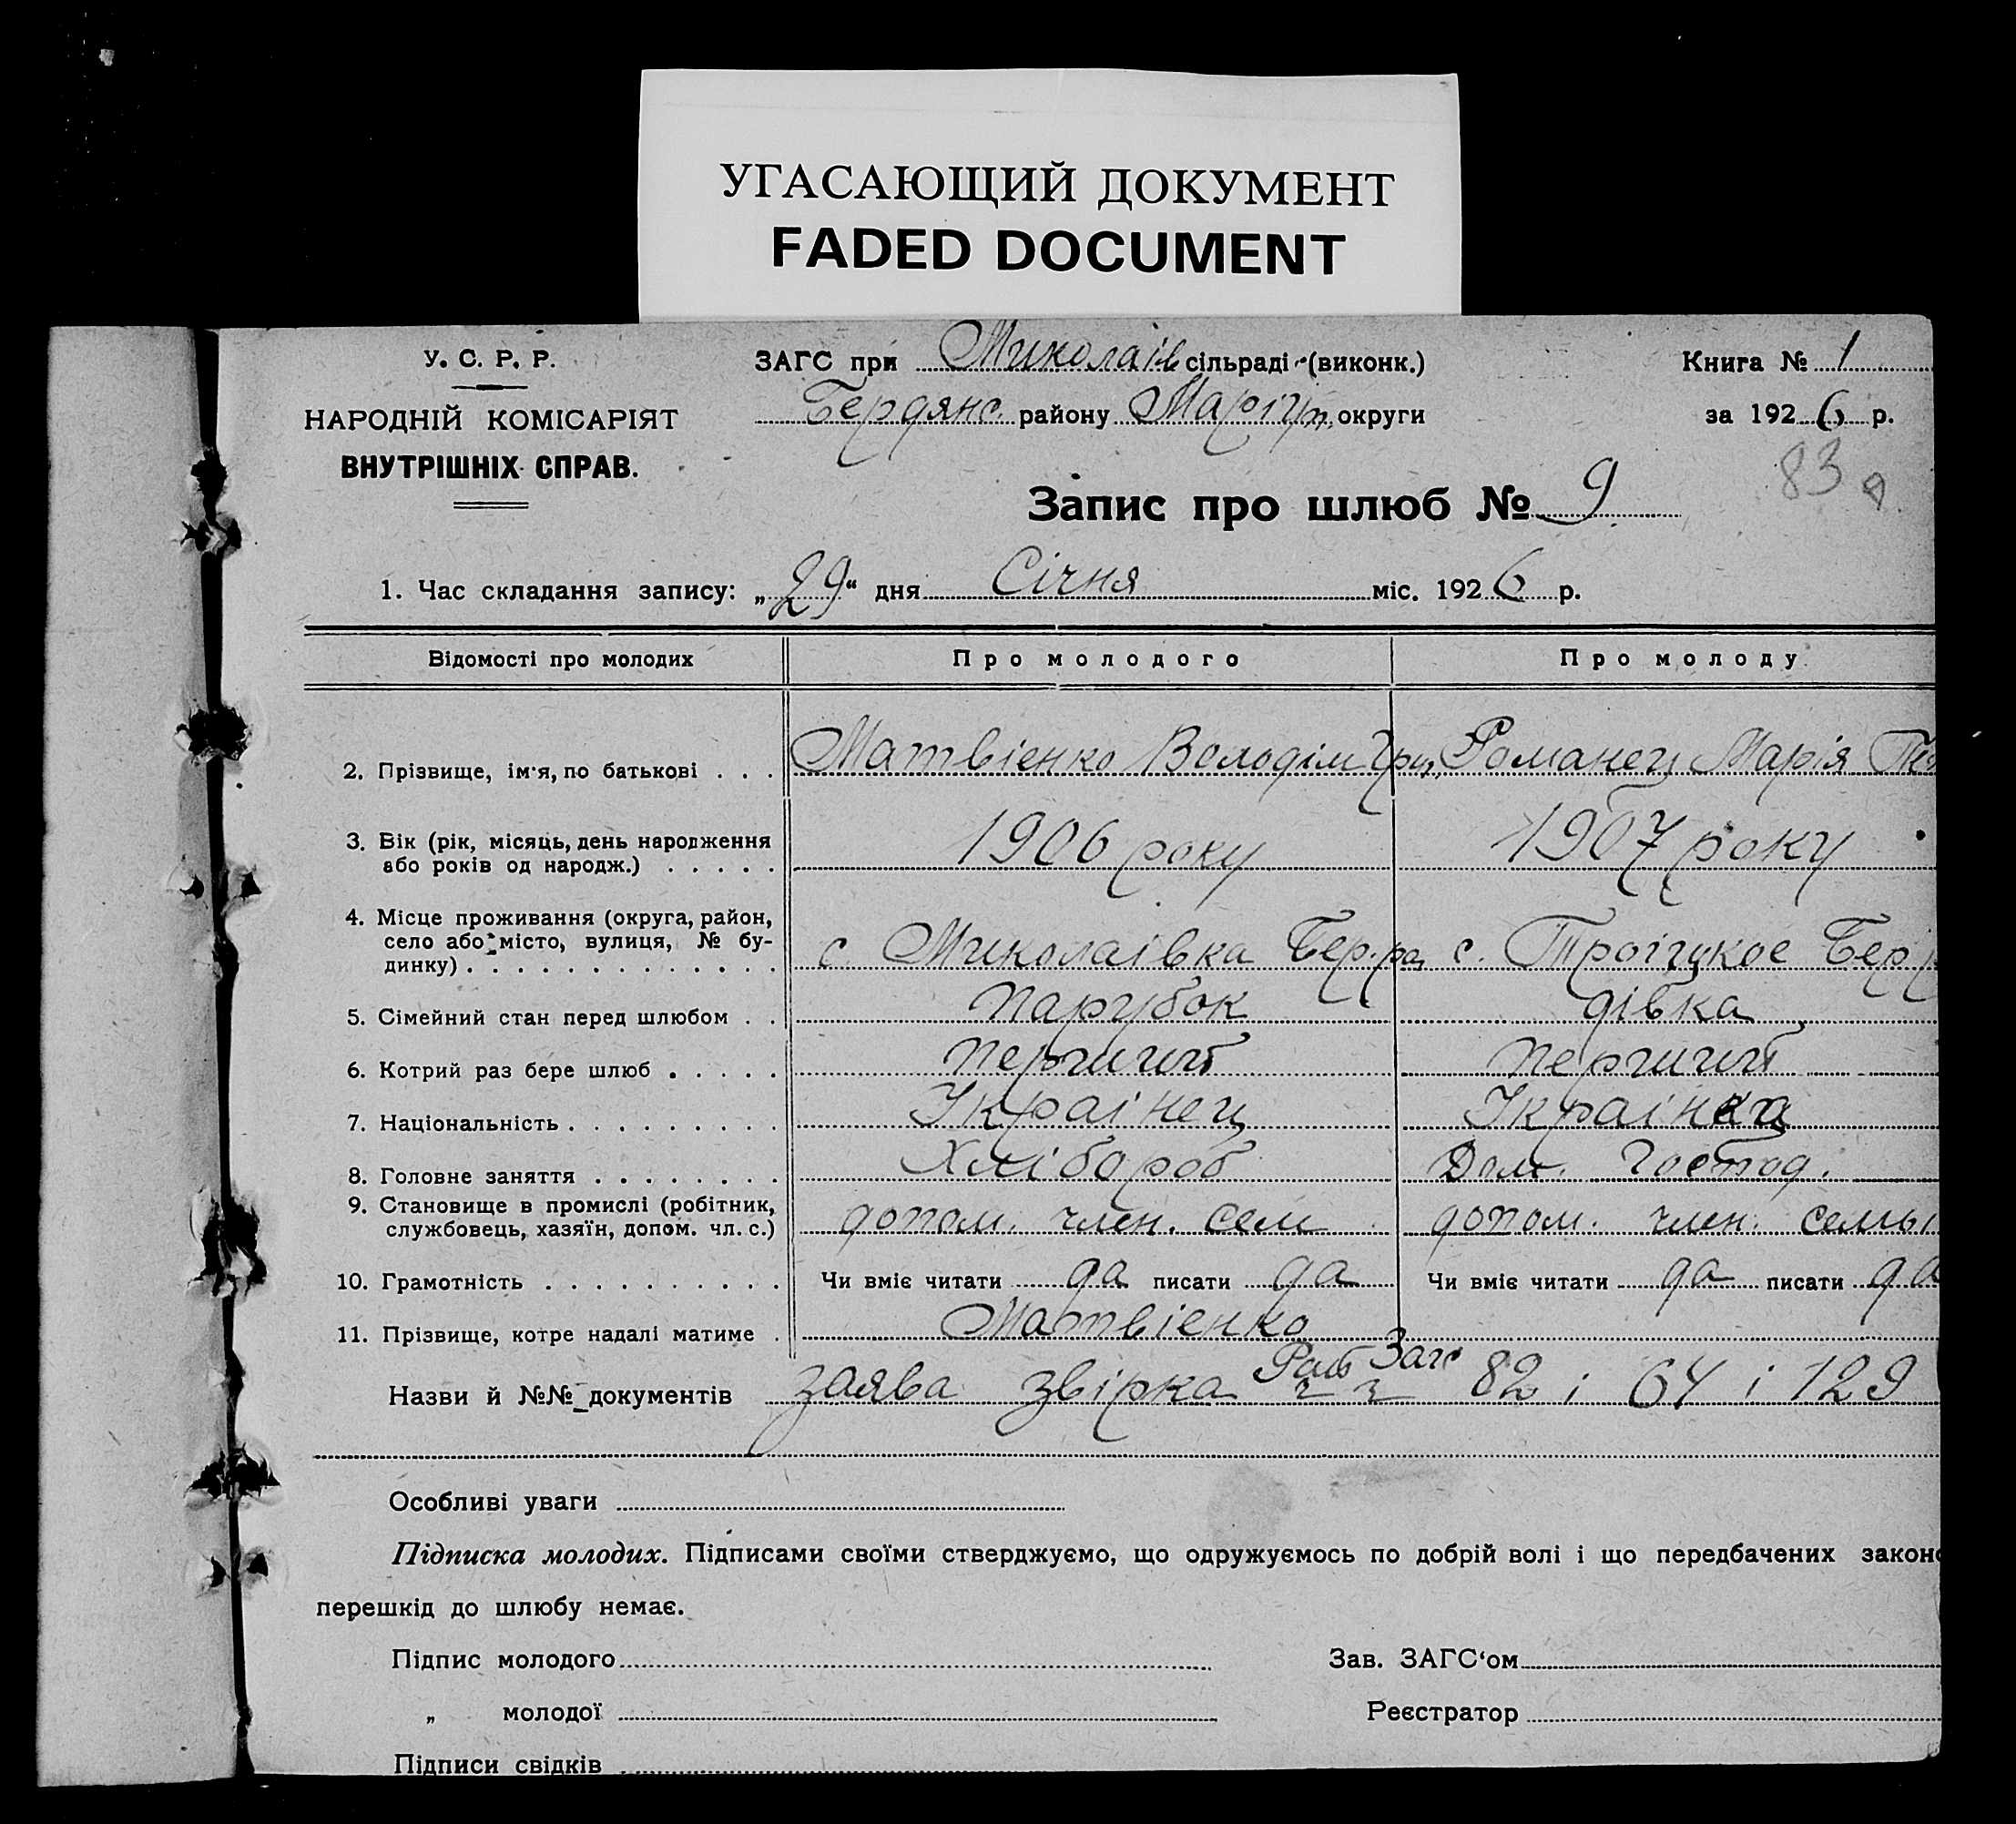 УГАСАЮЩИЙ ДОКУМЕНТ
FADED DOCUMENT
У. С. Р. Р.
НАРОДНІЙ КОМІСАРІЯТ
ВНУТРІШНІХ СПРАВ.
ЗАГС при Миколаів сільраді (виконк.)
Бердянс. району Маріуп. округи
Книга № 1
за 1926 р.
83
Запис про шлюб № 9
1. Час складання запису: „29“ дня Січня міс. 1926 р.
Відомості про молодих Про молодого Про молоду
2. Прізвище, ім'я, по батькові . . . Матвіенко Володім Гри, Романец Марія
3. Вік (рік, місяць, день народження
або років од народж.) . . . . . 1906 року 1907 року
4. Місце проживання (округа, район,
село або місто, вулиця, № бу-
динку) . . . . . . . . . . . . . с. Миколаівка Бер. ра с. Троіцкое Бер
5. Сімейний стан перед шлюбом . . парубок дівка
6. Котрий раз бере шлюб . . . . . перший перший
7. Національність . . . . . . . . . Украінец Украінка
8. Головне заняття . . . . . . . . Хлібороб Дом. Господ.
9. Становище в промислі (робітник,
службовець, хазяїн, допом. чл. с.) допом. член. сем допом. член. семьи
10. Грамотність . . . . . . . . . . Чи вміє читати да писати да Чи вміє читати да писати да
11. Прізвище, котре надалі матиме . Матвіенко
Назви й №№ документів заява звірка Загс 82 і 64 і 129
Особливі уваги
Підписка молодих. Підписами своїми стверджуємо, що одружуємось по добрій волі і що передбачених законо
перешкід до шлюбу немає.
Підпис молодого Зав. ЗАГС‘ом
„ молодої Реєстратор
Підписи свідків